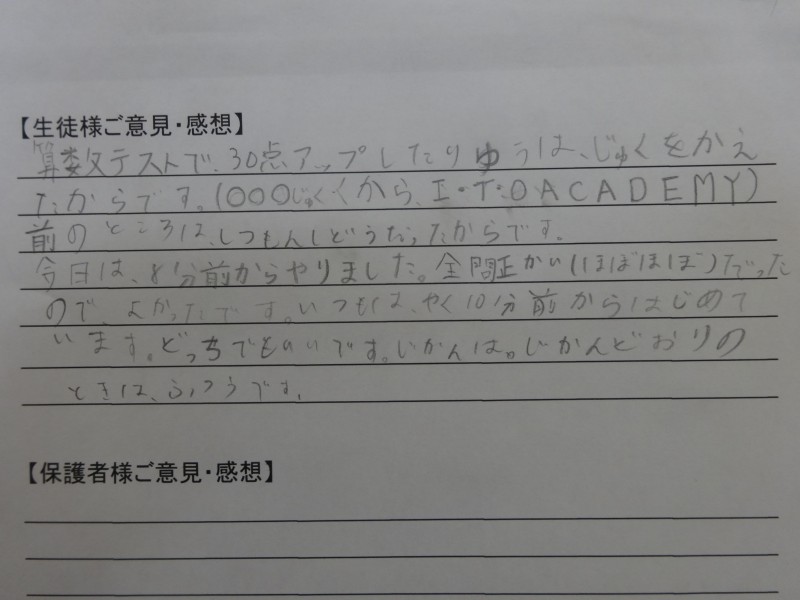 【生徒様ご意見・感想】
算数テストで、30点アップしたりゆうは、じゅくをかえ
たからです。(〇〇〇じゅくから、I・T・O ACADEMY)
前のところは、しつもんしどうだったからです。
今日は、8分前からやりました。全問正かい(ほぼほぼ)だった
ので、よかったです。いつもは、やく10分前からはじめて
います。どっちでもいいです。じかんは。じかんどおりの
ときは、ふつうです。
【保護者様ご意見・感想】